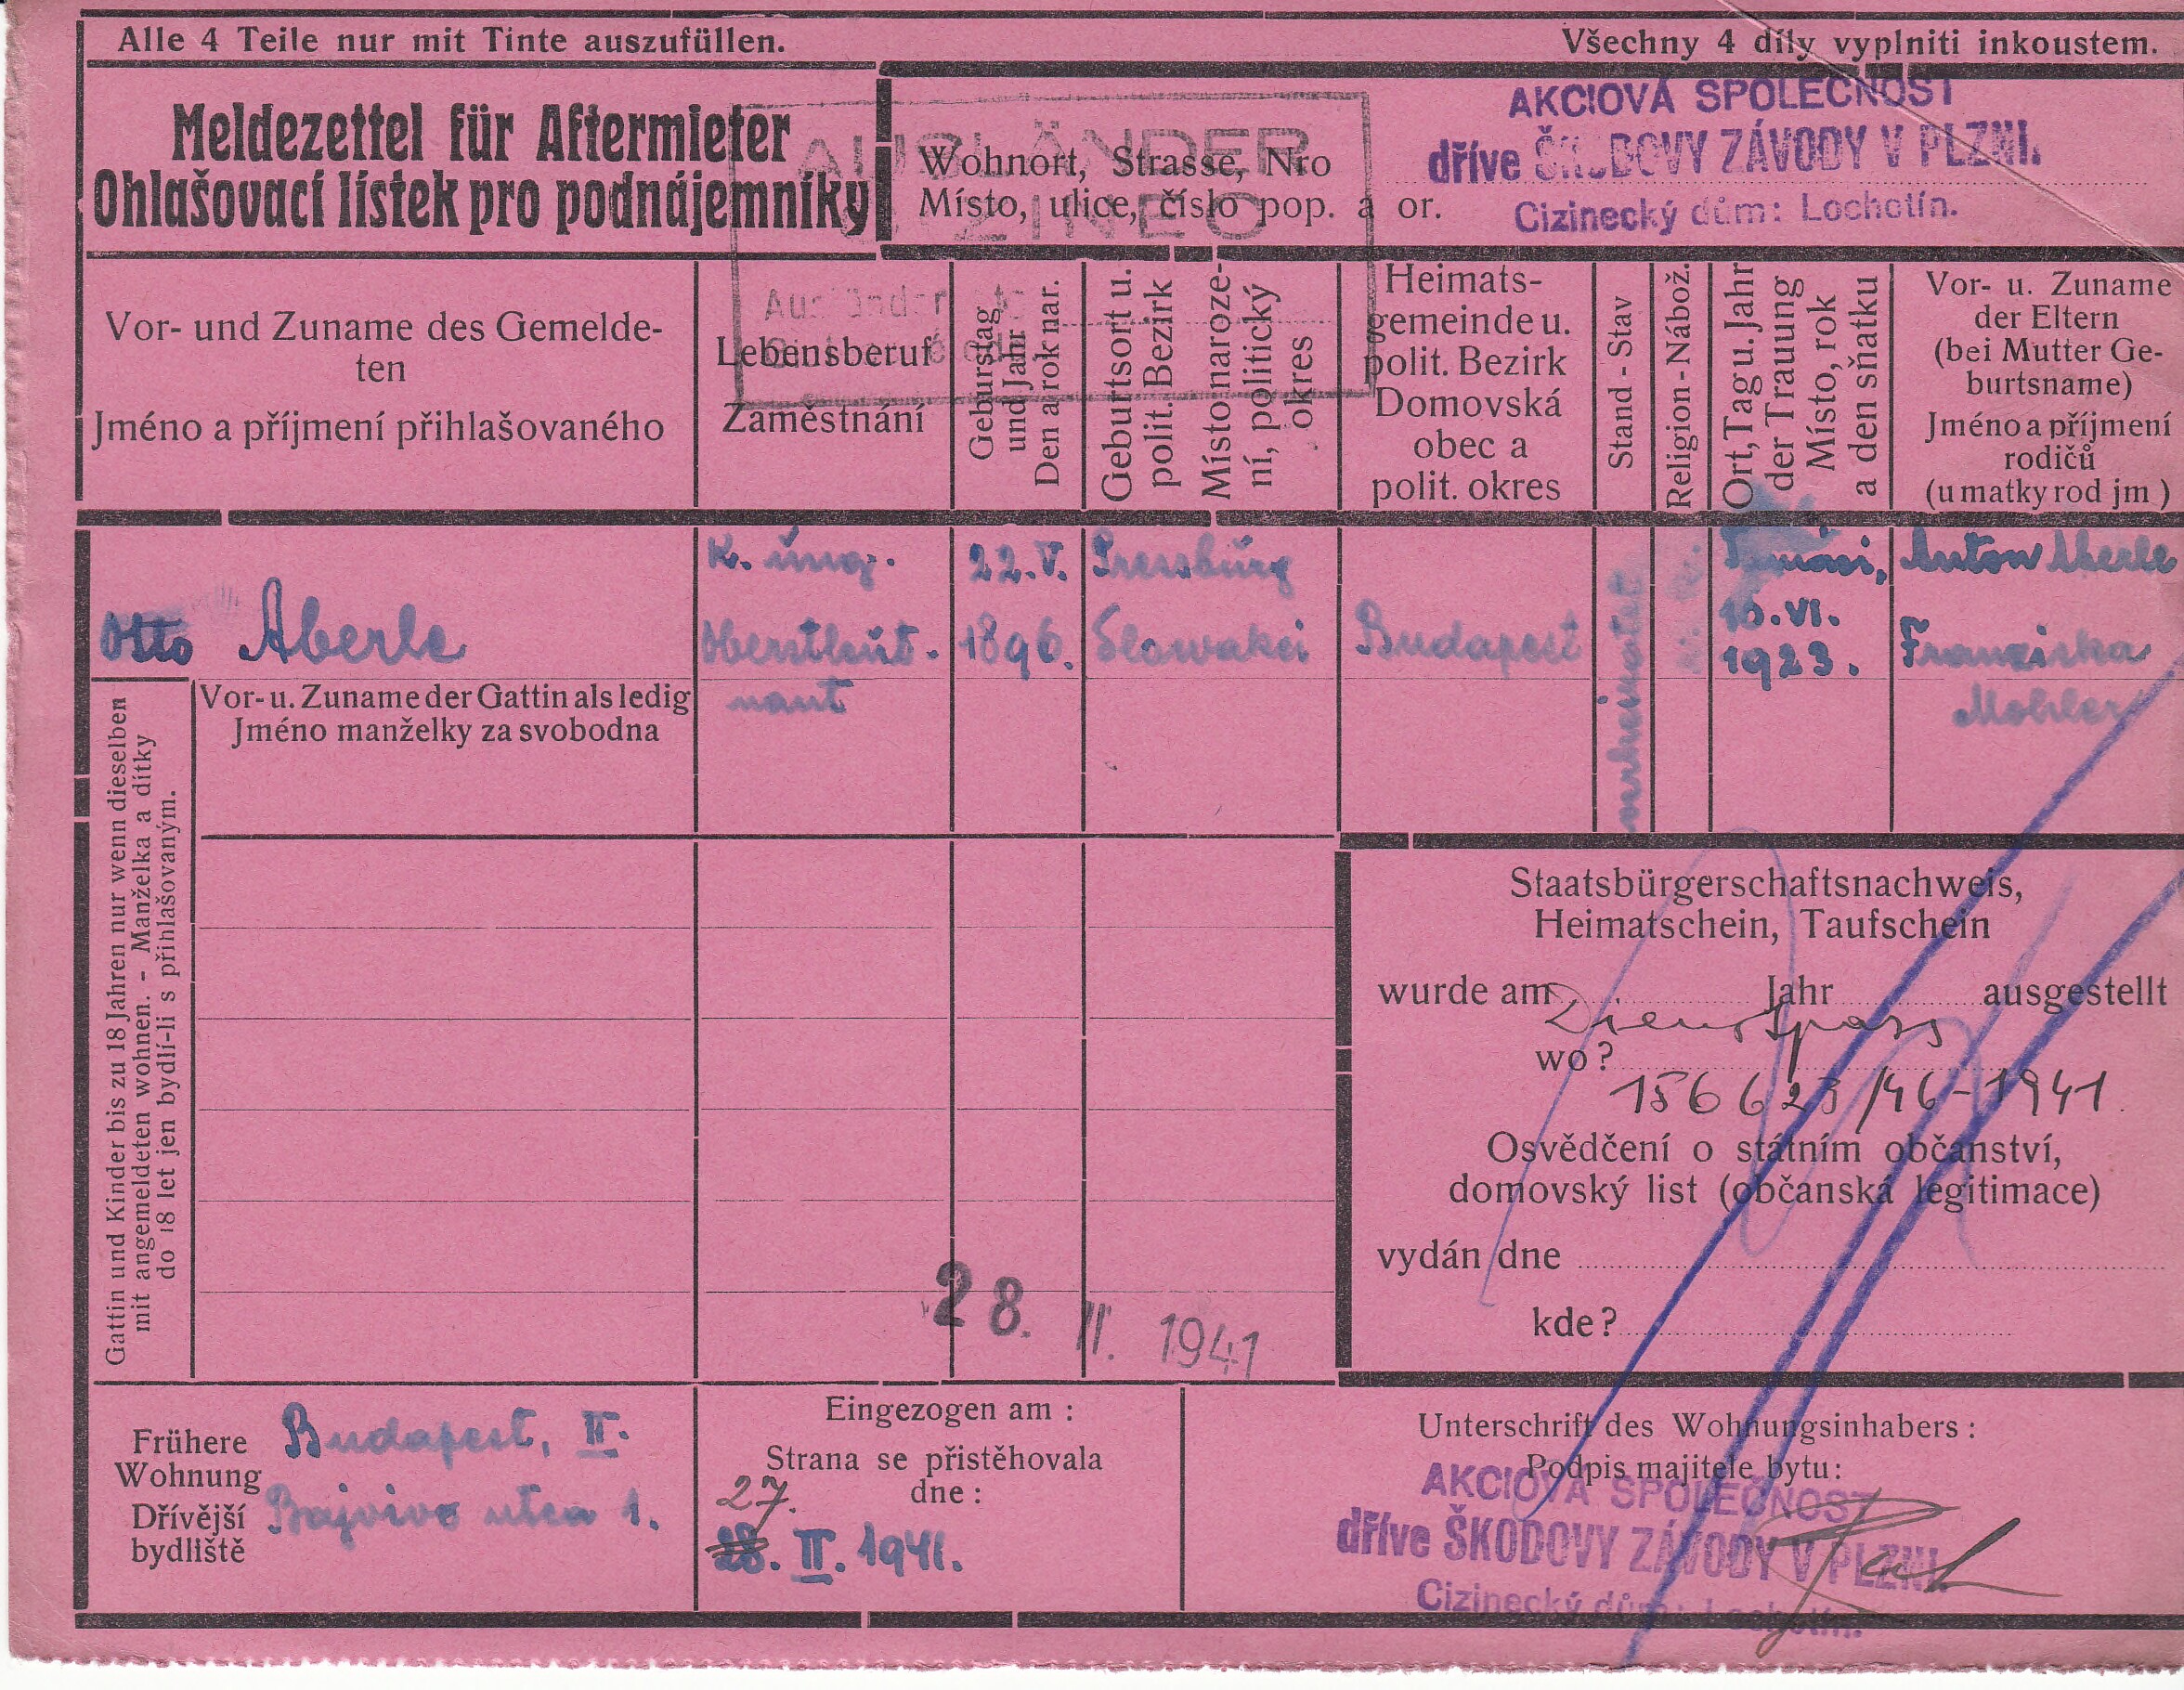 Alle 4 Teile nur mit Tinte auszufüllen.
Všechny 4 díly vyplniti inkoustem.
Meldezettel für Aftermieter
Ohlašovací lístek pro podnájemníky
AUSLÄNDER
CIZINEC
Wohnort, Strasse, Nro
Místo, ulice, číslo pop. a or.
AKCIOVÁ SPOLEČNOST
dříve ŠKODOVY ZÁVODY V PLZNI.
Cizinecký dům: Lochotín.
Vor- und Zuname des Gemelde-
ten
Jméno a příjmení přihlašovaného
Lebensberuf
Zaměstnání
Geburstag
und Jahr
Den a rok nar.
Geburtsort u.
polit. Bezirk
Místo naroze-
ní, politický
okres
Heimats-
gemeinde u.
polit. Bezirk
Domovská
obec a
polit. okres
Stand - Stav
Religion - Nábož.
Ort, Tag u. Jahr
der Trauung
Místo, rok
a den sňatku
Vor- u. Zuname
der Eltern
(bei Mutter Ge-
burtsname)
Jméno a příjmení
rodičů
(u matky rod jm )
Otto Aberle
K. ung.
Oberstleut-
nant
22. V.
1896.
Pressburg
Slowakei
Budapest
verheiratet
16. VI.
1923.
Anton Aberle
Franziska
Mohler
Vor- u. Zuname der Gattin als ledig
Jméno manželky za svobodna
Gattin und Kinder bis zu 18 Jahren nur wenn dieselben
mit angemeldeten wohnen. - Manželka a dítky
do 18 let jen bydlí-li s přihlašovaným.
Staatsbürgerschaftsnachweis,
Heimatschein, Taufschein
wurde am Jahr ausgestellt
Dienstpass
wo?
156623/46-1941.
Osvědčení o státním občanství,
domovský list (občanská legitimace)
vydán dne
kde?
28. II. 1941
Frühere
Wohnung
Dřívější
bydliště
Budapest, II.
Bajvivo utca 1.
Eingezogen am :
Strana se přistěhovala
dne :
27.
28. II. 1941.
Unterschrift des Wohnungsinhabers :
Podpis majitele bytu :
AKCIOVÁ SPOLEČNOST
dříve ŠKODOVY ZÁVODY V PLZNI.
Cizinecký dům: Lochotín.